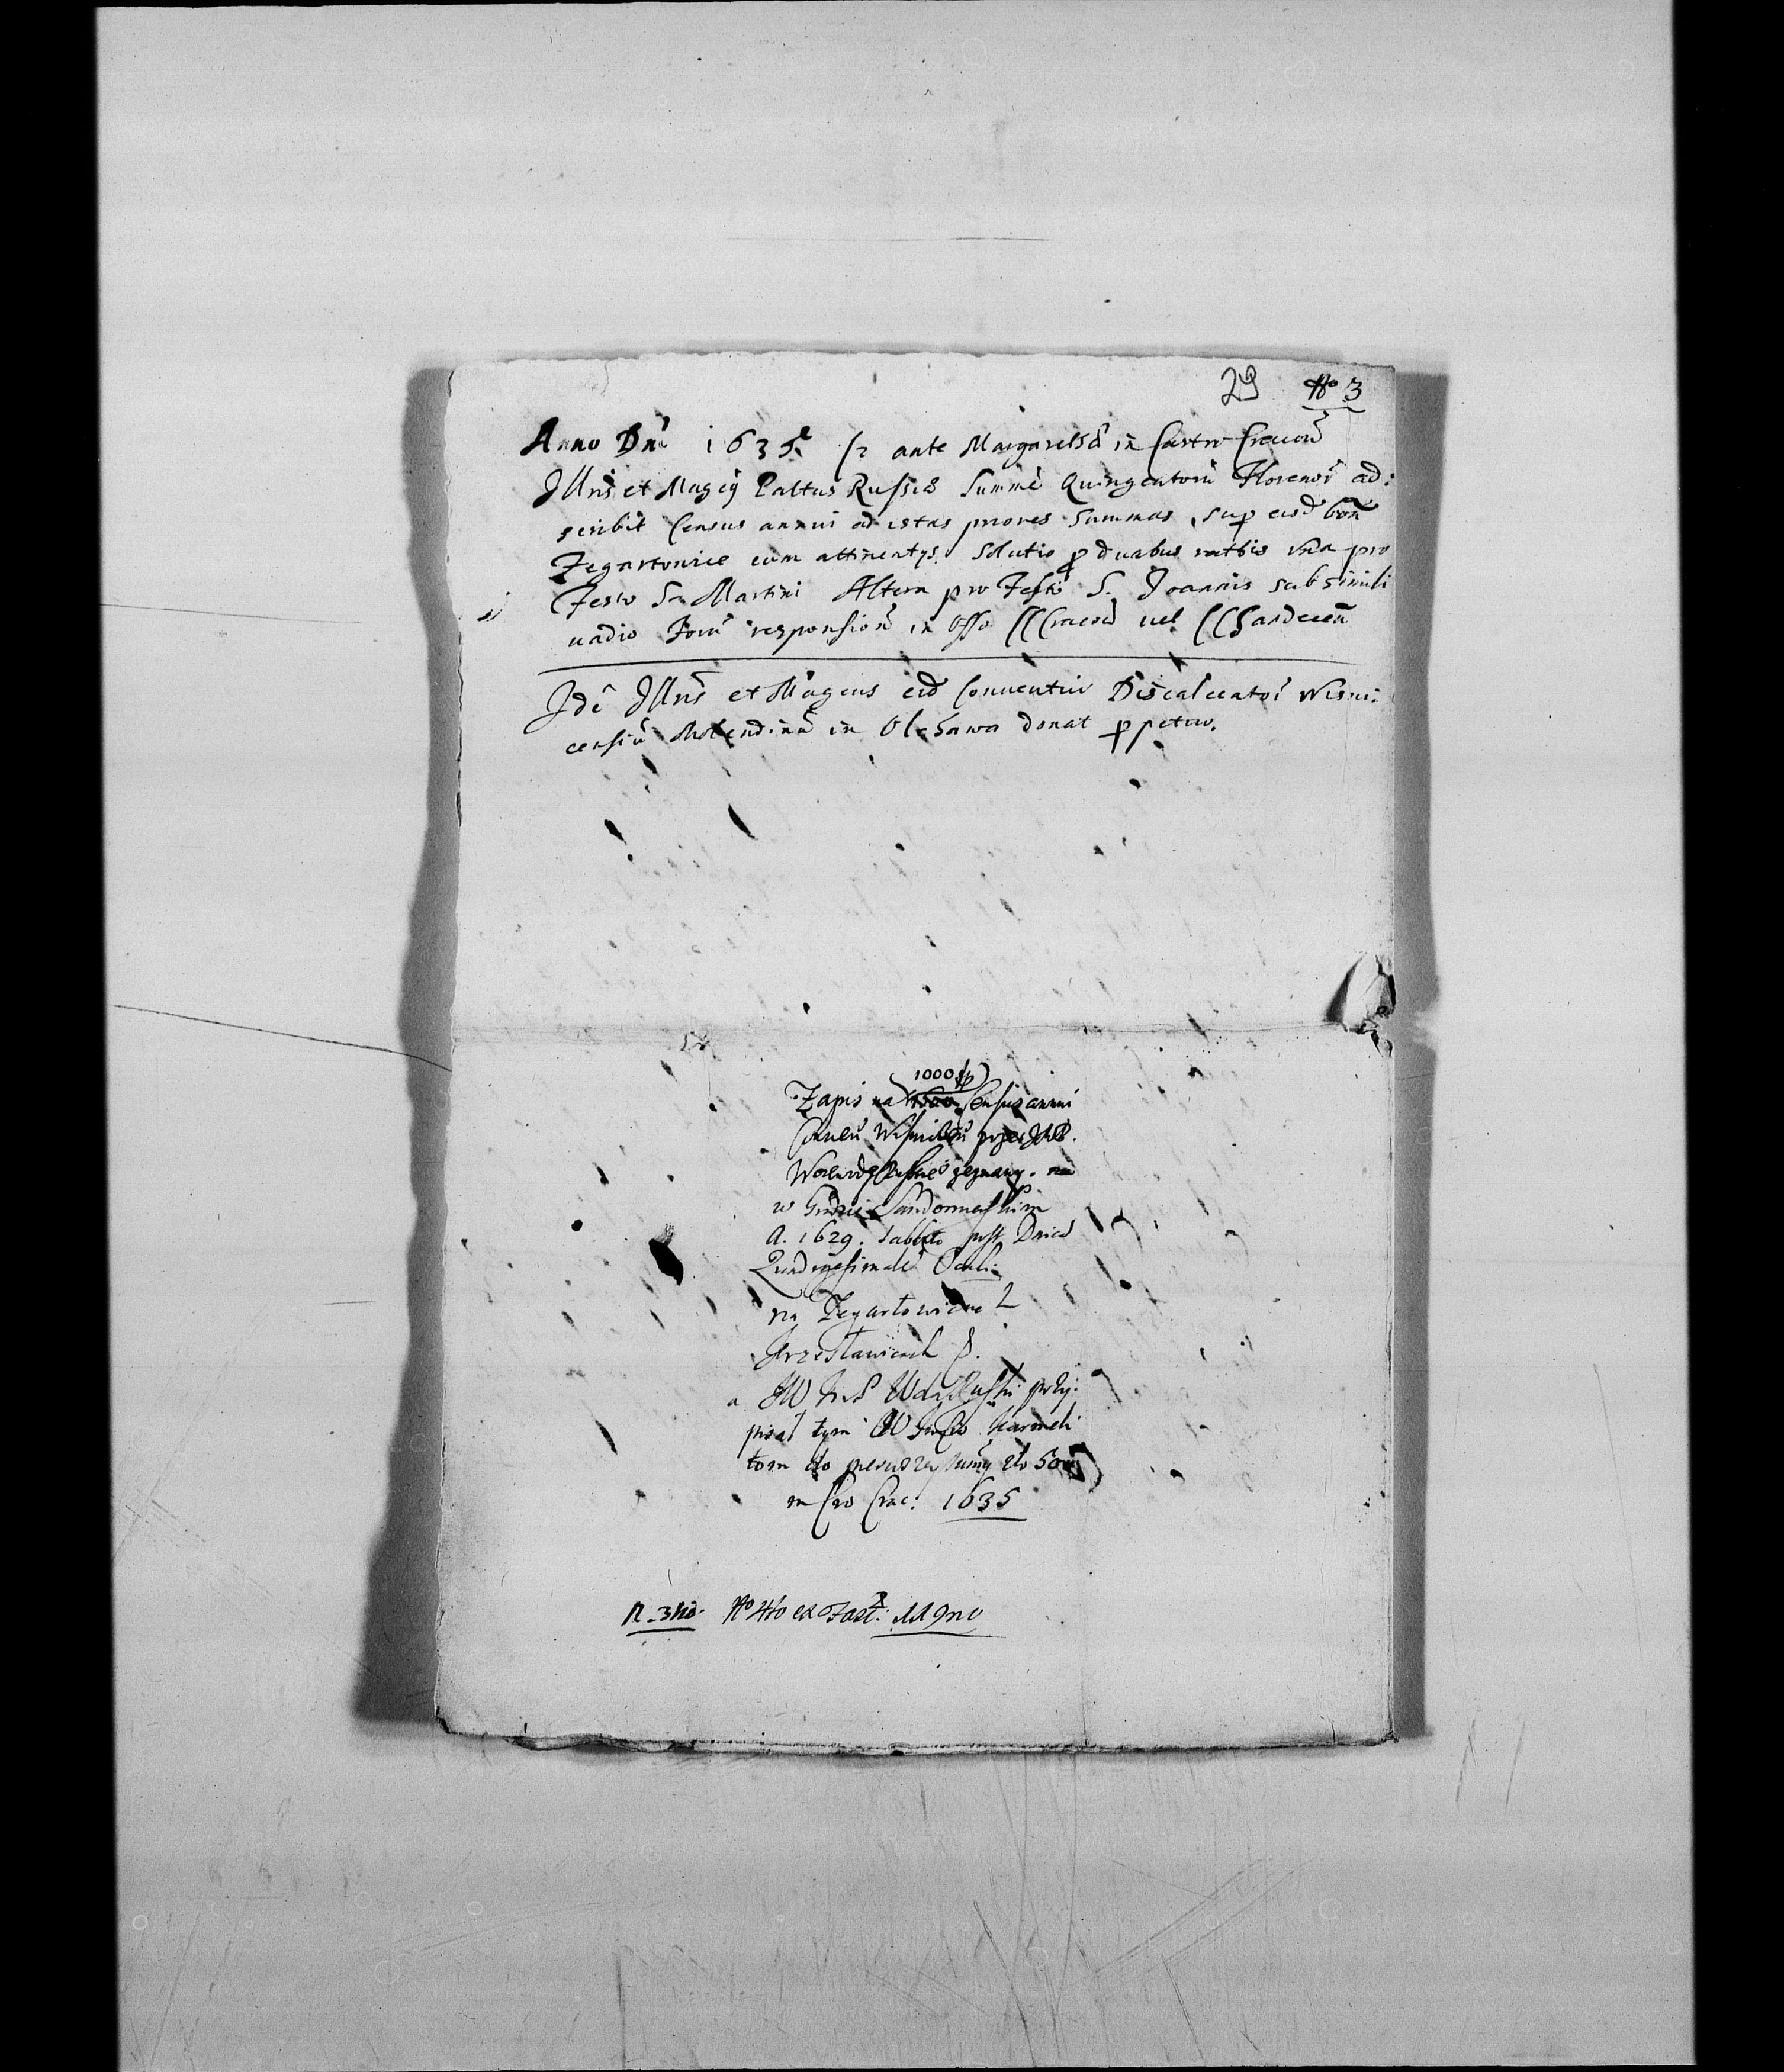 29 No 3
Anno Dni 1635 fr ante Margaretha in Castro Cracou
Illris et Magcus Paltus Russiae Summe Quingentoru Florenor ad:
scribit Census annui ad istas priores Summas, sup eisd bon
Zegartouice cum attinentys. Solutio p duabus ratbis vna pro
Festo Sa Martini Altera pro Festo S. Joannis sub simili
uadio Foru responsione in Offo CCracou uel CSandecen
Ide Illris et Magcus eid Conuentui Discalceator Wisni:
censiu Molendinu in Olchawa donat ppetuo.
1000
Zapis na 1500 Census annui
Conuen Wisnicen przez JMP.
Woiewodę Ruskiego zeznany.
w Grodzie Sandomerskim
A. 1629. Sabbato post Dnica
Quadragesimale Oculi
na Zegartowice
Jrzesławicach
a JW JmP Wda Ruski przy:
pisał tym Karmeli
tom do pierwszey sumy zło 500
in Cro Crac: 1635
N. 3tio. No 4to ex Fasc: